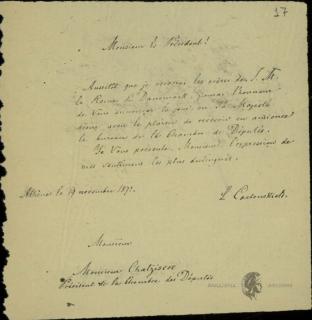 17
Monsieur le Président!
Aussitôt que je recevrai les ordres de S. M.
la Reine de Danemark j'aurai l'honneur
de Vous annoncer le jour où Sa Majesté
aura le plaisir de recevoir en audience
le bureau de la Chambre de Députés.
Je Vous présente, Monsieur, l'expression de
mes sentiments les plus distingués.
Athènes le 19 novembre
Monsieur
Monsieur Chatziscos
Président de la Chambre des Députés